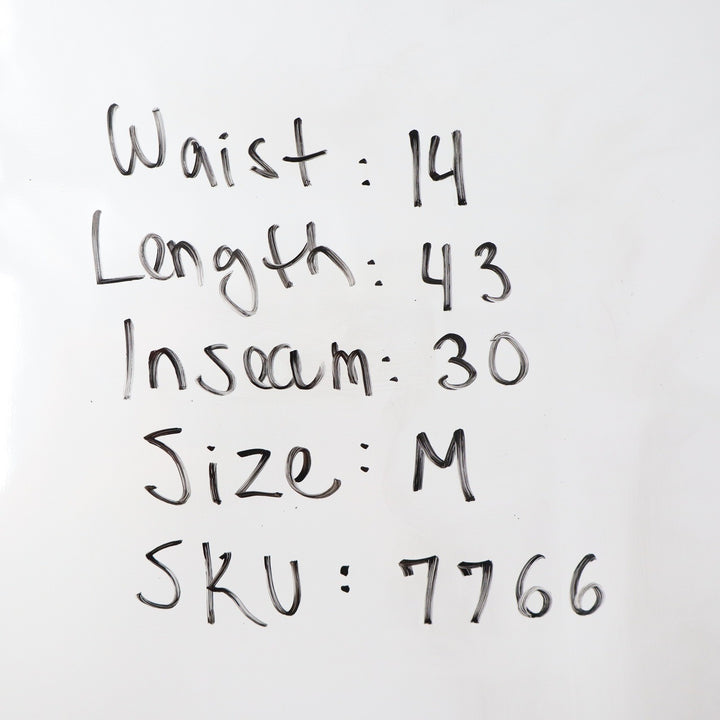 Waist: 14
Length: 43
Inseam: 30
Size: M
SKU: 7766